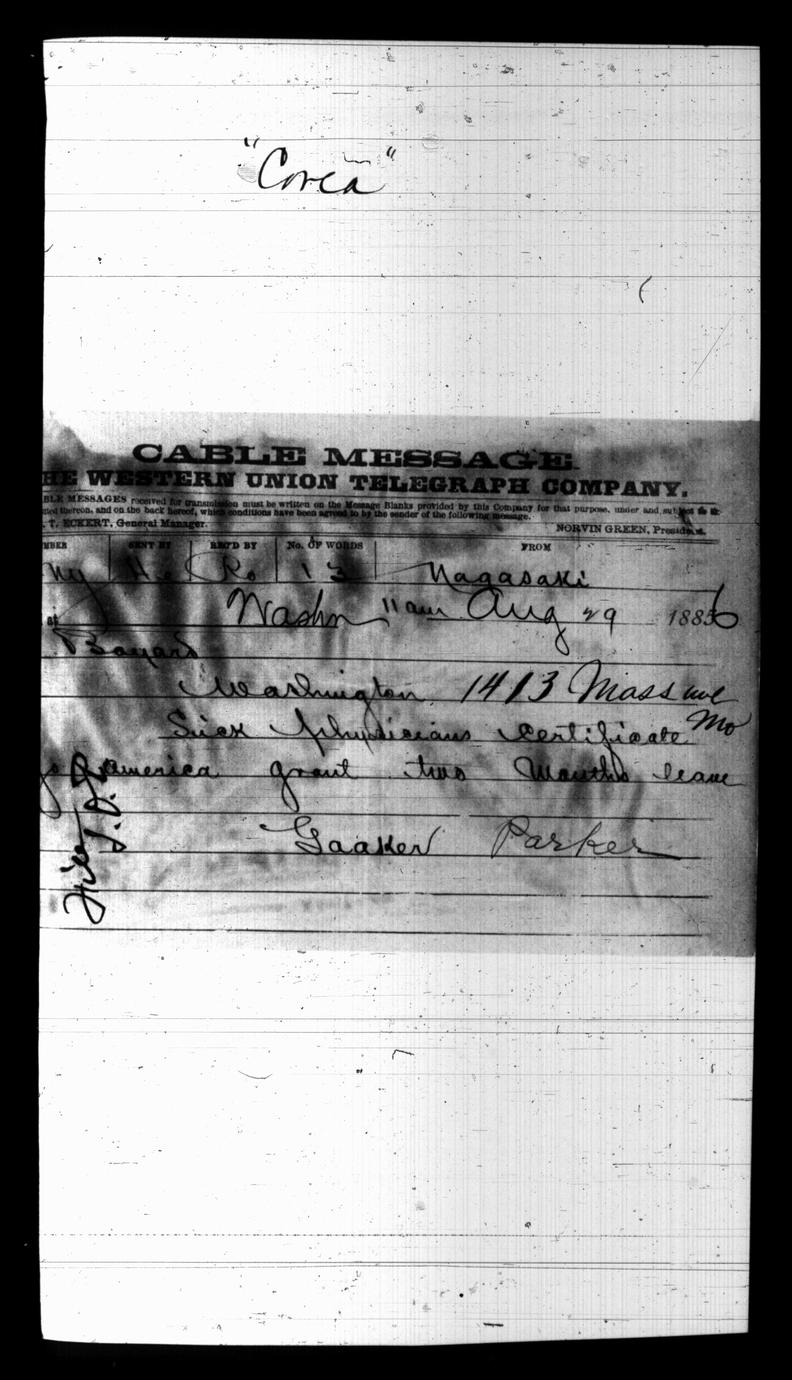 "Corea"
CABLE MESSAGE.
HE WESTERN UNION TELEGRAPH COMPANY.
BLE MESSAGES received for transmission must be written on the Message Blanks provided by this Company for that purpose, under and subject to
ted thereon, and on the back hereof, which conditions have been agreed to by the sender of the following message.
. T. ECKERT, General Manager. NORVIN GREEN, President.
MBER SENT BY REC'D BY No. OF WORDS FROM
Ny Ha Ro 13 Nagasaki
at Washn 11am Aug 29 1886
Bayard
Washington 1413 Mass ave
Sick physicians certificate
go America grant two Months leave
Gaaker Parker
File